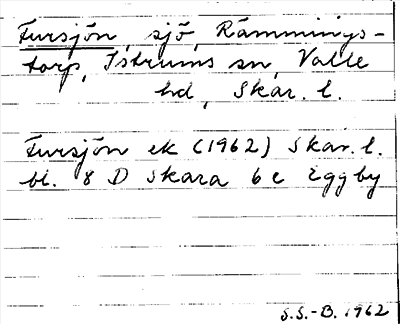 Fursjön, sjö, Rämmings-
torp, Istrums sn, Valle
hd, Skar. l.
Fursjön ek (1962) Skar. l.
bl. 8 D Skara 6 e Eggby
S.S.-B. 1962